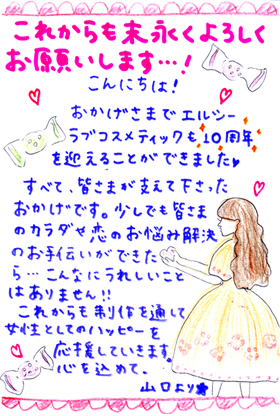 これからも末永くよろしく
お願いします…!
こんにちは!
おかげさまでエルシー
ラブコスメティックも10周年
を迎えることができました♥
すべて、皆さまが支えて下さった
おかげです。少しでも皆さま
のカラダや恋のお悩み解決
のお手伝いができた
ら…こんなにうれしいこと
はありません!!
これからも制作を通して
女性としてのハッピーを
応援していきます。
心を込めて。
山口より